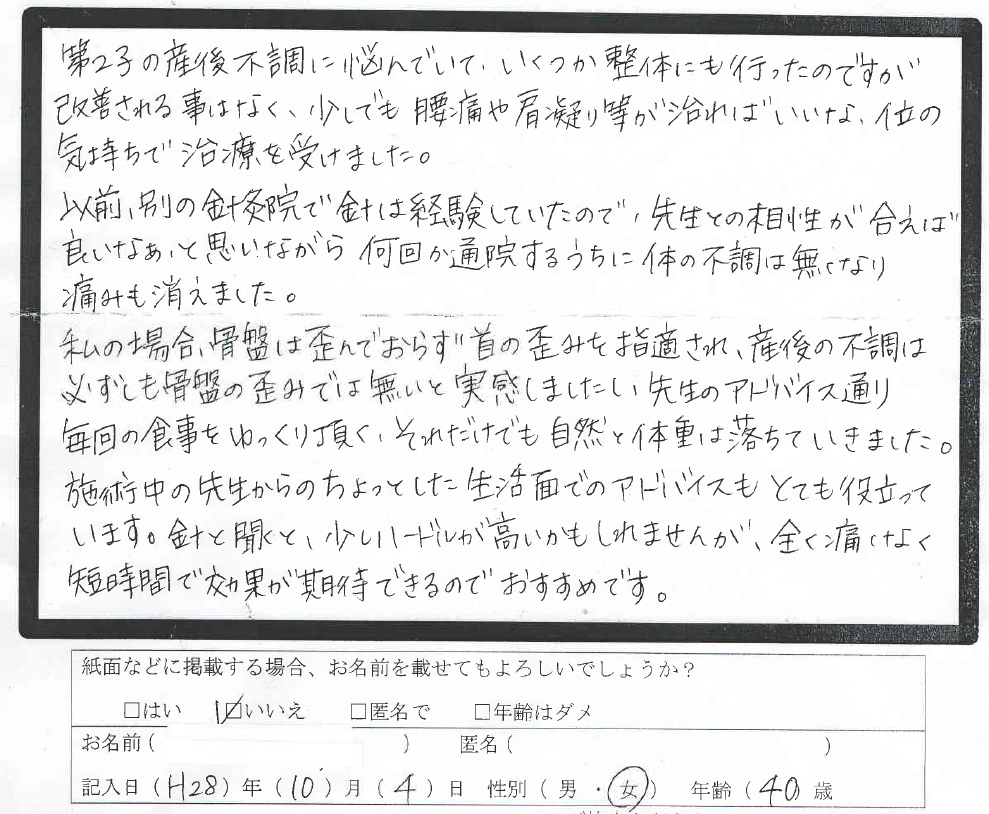 第2子の産後不調に悩んでいて、いくつか整体にも行ったのですが
改善される事はなく、少しでも腰痛や肩凝り等が治ればいいな、位の
気持ちで治療を受けました。
以前、別の針灸院で針は経験していたので、先生との相性が合えば
良いなぁ、と思いながら何回か通院するうちに体の不調は無くなり
痛みも消えました。
私の場合、骨盤は歪んでおらず首の歪みを指適され、産後の不調は
必ずしも骨盤の歪みでは無いと実感しましたし先生のアドバイス通り
毎回の食事をゆっくり頂く、それだけでも自然と体重は落ちていきました。
施術中の先生からのちょっとした生活面でのアドバイスもとても役立って
います。針と聞くと、少しハードルが高いかもしれませんが、全く痛くなく
短時間で効果が期待できるのでおすすめです。
紙面などに掲載する場合、お名前を載せてもよろしいでしょうか?
□はい ☑いいえ □匿名で □年齢はダメ
お名前( ) 匿名( )
記入日(H28)年(10)月(4)日 性別(男・女) 年齢(40)歳